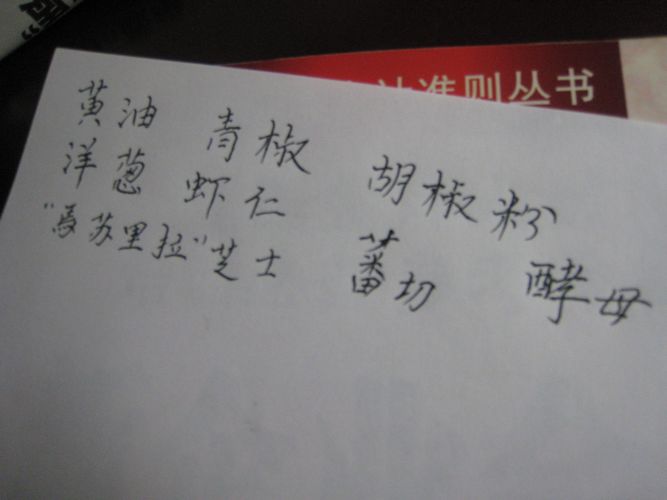 则丛书
黄油 青椒 胡椒粉
洋葱 虾仁
"马苏里拉"芝士 蕃切 酵母